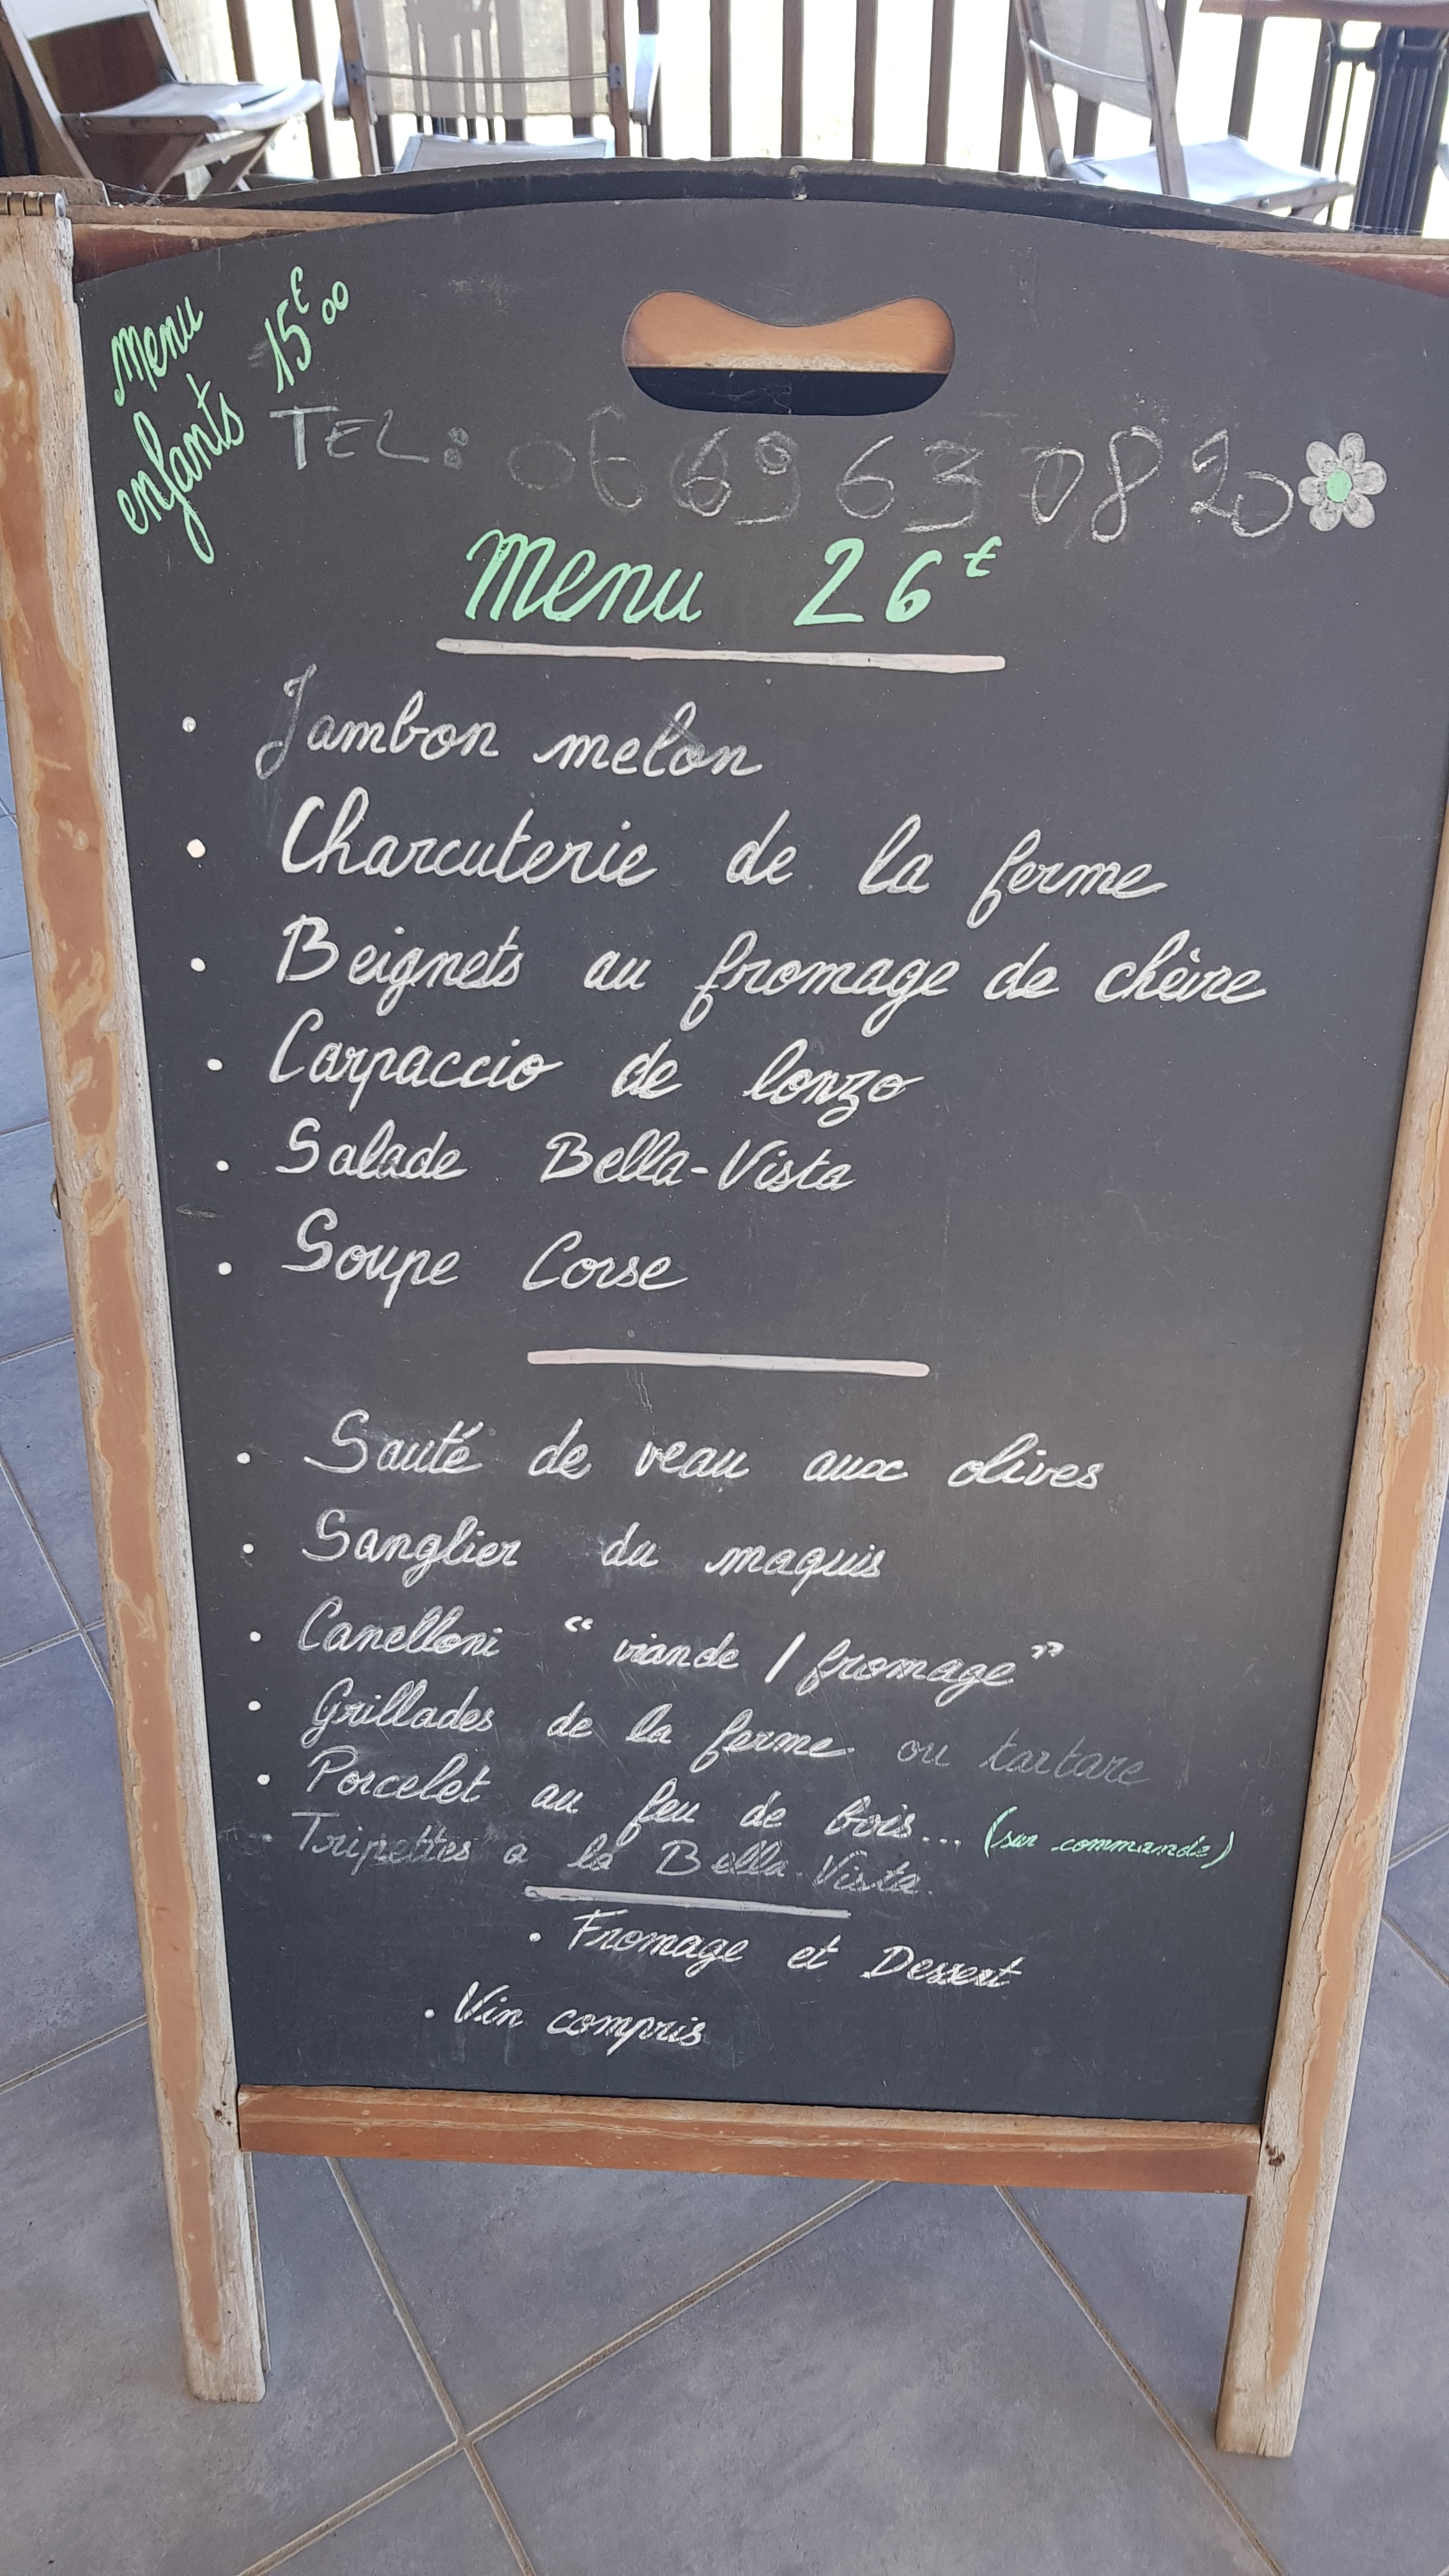 Menu
enfants 15€00
TEL: 06 69 63 08 20
Menu 26€
• Jambon melon
• Charcuterie de la ferme
• Beignets au fromage de chèvre
• Carpaccio de lonzo
• Salade Bella-Vista
• Soupe Corse
• Sauté de veau aux olives
• Sanglier du maquis
• Canelloni "viande / fromage"
• Grillades de la ferme ou tartare
• Porcelet au feu de bois... (sur commande)
Tripettes a la Bella-Vista.
• Fromage et Dessert
• Vin compris